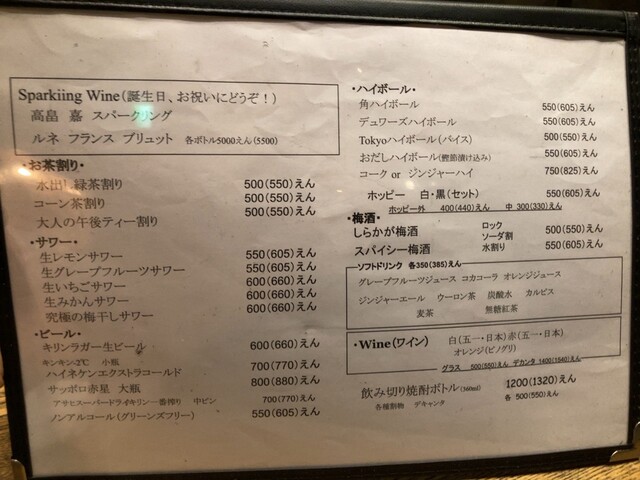 Sparkiing Wine(誕生日、お祝いにどうぞ！)
高畠 嘉 スパークリング
ルネ フランス ブリュット 各ボトル5000えん(5500)
・お茶割り・
水出し緑茶割り 500(550)えん
コーン茶割り 500(550)えん
大人の午後ティー割り 500(550)えん
・サワー・
生レモンサワー 550(605)えん
生グレープフルーツサワー 550(605)えん
生いちごサワー 600(660)えん
生みかんサワー 600(660)えん
究極の梅干しサワー 600(660)えん
・ビール・
キリンラガー生ビール 600(660)えん
キンキン-2℃ 小瓶
ハイネケンエクストラコールド 700(770)えん
サッポロ赤星 大瓶 800(880)えん
アサヒスーパードライキリン一番搾り 中ビン 700(770)えん
ノンアルコール(グリーンズフリー) 550(605)えん
・ハイボール・
角ハイボール 550(605)えん
デュワーズハイボール 550(605)えん
Tokyoハイボール(パイス) 500(550)えん
おだしハイボール(鰹節漬け込み) 550(605)えん
コーク or ジンジャーハイ 750(825)えん
ホッピー 白・黒(セット) 550(605)えん
ホッピー外 400(440)えん 中 300(330)えん
・梅酒・
しらかが梅酒 ロック 500(550)えん
ソーダ割
スパイシー梅酒 水割り 550(605)えん
ソフトドリンク 各350(385)えん
グレープフルーツジュース コカコーラ オレンジジュース
ジンジャーエール ウーロン茶 炭酸水 カルピス
麦茶 無糖紅茶
・Wine(ワイン) 白(五一・日本)赤(五一・日本)
オレンジ(ピノグリ)
グラス 500(550)えん デカンタ 1400(1540)えん
飲み切り焼酎ボトル(360ml) 1200(1320)えん
各種割物 デキャンタ 各 500(550)えん